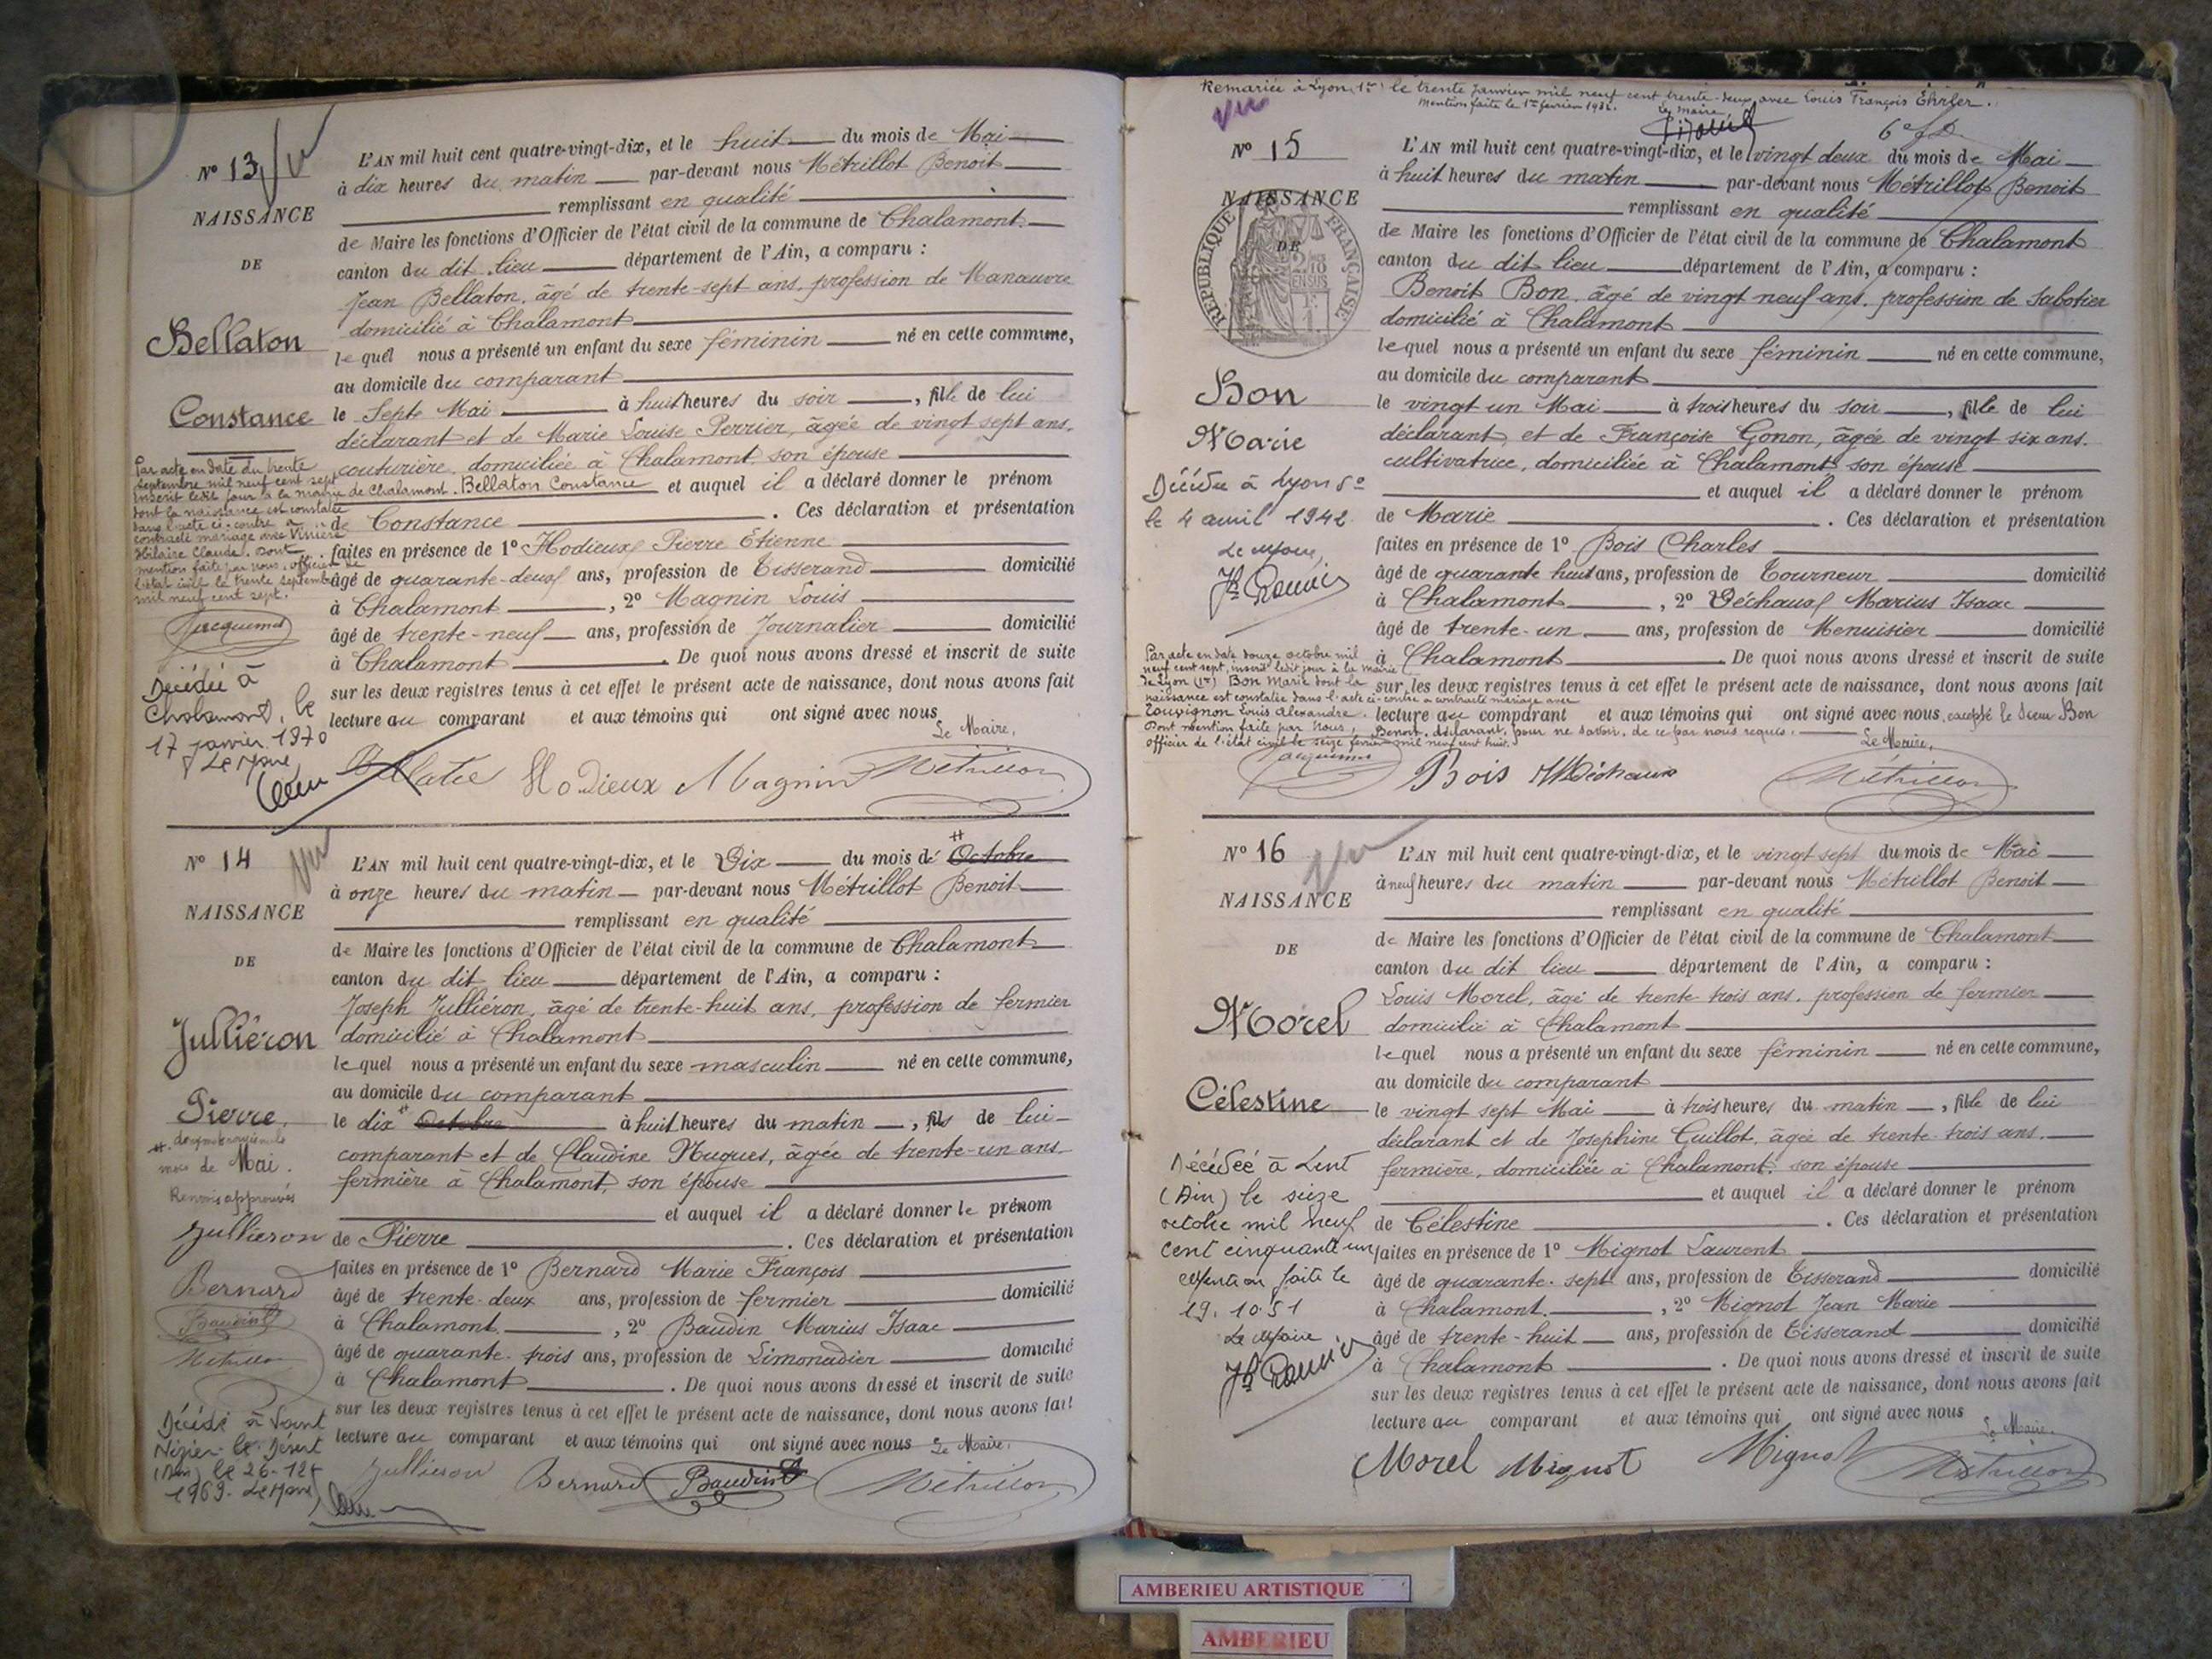 Nº 13
NAISSANCE
DE
Bellaton
Constance
L'AN mil huit cent quatre-vingt-dix, et le huit du mois de Mai
à dix heures du matin par-devant nous Métrillot Benoit
remplissant en qualité
de Maire les fonctions d'Officier de l'état civil de la commune de Chalamont
canton du dit lieu département de l'Ain, a comparu :
Jean Bellaton, âgé de trente-sept ans, profession de Manœuvre
domicilié à Chalamont
lequel nous a présenté un enfant du sexe féminin né en cette commune,
au domicile du comparant
le Sept Mai à huit heures du soir, fille de lui
déclarant et de Marie Louise Perrier, âgée de vingt sept ans,
couturière, domiciliée à Chalamont, son épouse
et auquel il a déclaré donner le prénom
de Constance. Ces déclaration et présentation
faites en présence de 1º Hodieux Pierre Etienne
âgé de quarante-deux ans, profession de Tisserand domicilié
à Chalamont, 2º Magnin Louis
âgé de trente-neuf ans, profession de Journalier domicilié
à Chalamont. De quoi nous avons dressé et inscrit de suite
sur les deux registres tenus à cet effet le présent acte de naissance, dont nous avons fait
lecture au comparant et aux témoins qui ont signé avec nous
Le Maire,
Hodieux Magnin Métrillot
Par acte en date du trente
septembre mil neuf cent sept
inscrit ledit jour à la mairie de Chalamont. Bellaton Constance
dont la naissance est constatée
dans l'acte ci-contre a
contracté mariage avec Vinière
Hilaire Claude. Dont
mention faite par nous, officier de
l'état civil le trente septembre
mil neuf cent sept.
Jacquemet
Décédée à
Chalamont, le
17 janvier 1970
Le Maire
Nº 14
NAISSANCE
DE
Julliéron
Pierre
L'AN mil huit cent quatre-vingt-dix, et le Dix du mois de Octobre
à onze heures du matin par-devant nous Métrillot Benoit
remplissant en qualité
de Maire les fonctions d'Officier de l'état civil de la commune de Chalamont
canton du dit lieu département de l'Ain, a comparu :
Joseph Julliéron, âgé de trente-huit ans, profession de fermier
domicilié à Chalamont
lequel nous a présenté un enfant du sexe masculin né en cette commune,
au domicile du comparant
le dix Octobre à huit heures du matin, fils de lui
comparant et de Claudine Hugues, âgée de trente-un ans
fermière à Chalamont, son épouse
et auquel il a déclaré donner le prénom
de Pierre. Ces déclaration et présentation
faites en présence de 1º Bernard Marie François
âgé de trente-deux ans, profession de fermier domicilié
à Chalamont, 2º Baudin Marius Isaac
âgé de quarante-trois ans, profession de Limonadier domicilié
à Chalamont. De quoi nous avons dressé et inscrit de suite
sur les deux registres tenus à cet effet le présent acte de naissance, dont nous avons fait
lecture au comparant et aux témoins qui ont signé avec nous Le Maire,
Jullieron Bernard Baudin Métrillot
mois de Mai.
Renvois approuvés
Jullieron
Bernard
Baudin
Métrillot
Décédé à Saint
Nizier-le-Désert
(Ain) le 26-12
1969. Le Maire,
Remariée à Lyon (1er) le trente janvier mil neuf cent trente-deux avec Louis François Ehrler.
Mention faite le 1er février 1932.
Le maire,
Nº 15
NAISSANCE
DE
RÉPUBLIQUE FRANÇAISE
Bon
Marie
L'AN mil huit cent quatre-vingt-dix, et le vingt deux du mois de Mai
à huit heures du matin par-devant nous Métrillot Benoit
remplissant en qualité
de Maire les fonctions d'Officier de l'état civil de la commune de Chalamont
canton du dit lieu département de l'Ain, a comparu :
Benoit Bon, âgé de vingt neuf ans, profession de Sabotier
domicilié à Chalamont
lequel nous a présenté un enfant du sexe féminin né en cette commune,
au domicile du comparant
le vingt un Mai à trois heures du soir, fille de lui
déclarant, et de Françoise Gonon, âgée de vingt six ans.
cultivatrice, domiciliée à Chalamont son épouse
et auquel il a déclaré donner le prénom
de Marie. Ces déclaration et présentation
faites en présence de 1º Bois Charles
âgé de quarante huit ans, profession de Tourneur domicilié
à Chalamont, 2º Déchaux Marius Isaac
âgé de trente-un ans, profession de Menuisier domicilié
à Chalamont. De quoi nous avons dressé et inscrit de suite
sur les deux registres tenus à cet effet le présent acte de naissance, dont nous avons fait
lecture au comparant et aux témoins qui ont signé avec nous, excepté le sieur Bon
Benoit, déclarant, pour ne savoir, de ce par nous requis.
Le Maire,
Bois Déchaux Métrillot
Décédée à Lyon 5º
le 4 avril 1942
Le Maire,
Par acte en date douze octobre mil
neuf cent sept, inscrit ledit jour à la mairie
de Lyon (1er) Bon Marie dont la
naissance est constatée dans l'acte ci-contre a contracté mariage avec
Touvignon Louis Alexandre.
Dont mention faite par nous,
officier de l'état civil le seize février mil neuf cent huit.
Jacquemet
Nº 16
NAISSANCE
DE
Morel
Célestine
L'AN mil huit cent quatre-vingt-dix, et le vingt sept du mois de Mai
à neuf heures du matin par-devant nous Métrillot Benoit
remplissant en qualité
de Maire les fonctions d'Officier de l'état civil de la commune de Chalamont
canton du dit lieu département de l'Ain, a comparu :
Louis Morel, âgé de trente trois ans, profession de fermier
domicilié à Chalamont
lequel nous a présenté un enfant du sexe féminin né en cette commune,
au domicile du comparant
le vingt sept Mai à trois heures du matin, fille de lui
déclarant et de Josephine Guillot, âgée de trente-trois ans.
fermière, domiciliée à Chalamont, son épouse
et auquel il a déclaré donner le prénom
de Célestine. Ces déclaration et présentation
faites en présence de 1º Mignot Laurent
âgé de quarante-sept ans, profession de Tisserand domicilié
à Chalamont, 2º Mignot Jean Marie
âgé de trente-huit ans, profession de Tisserand domicilié
à Chalamont. De quoi nous avons dressé et inscrit de suite
sur les deux registres tenus à cet effet le présent acte de naissance, dont nous avons fait
lecture au comparant et aux témoins qui ont signé avec nous
Le Maire.
Morel Mignot Mignot Métrillot
Décédée à Lent
(Ain) le seize
octobre mil neuf
cent cinquante un
Mention faite le
19.10.51
Le Maire,
AMBERIEU ARTISTIQUE
AMBERIEU